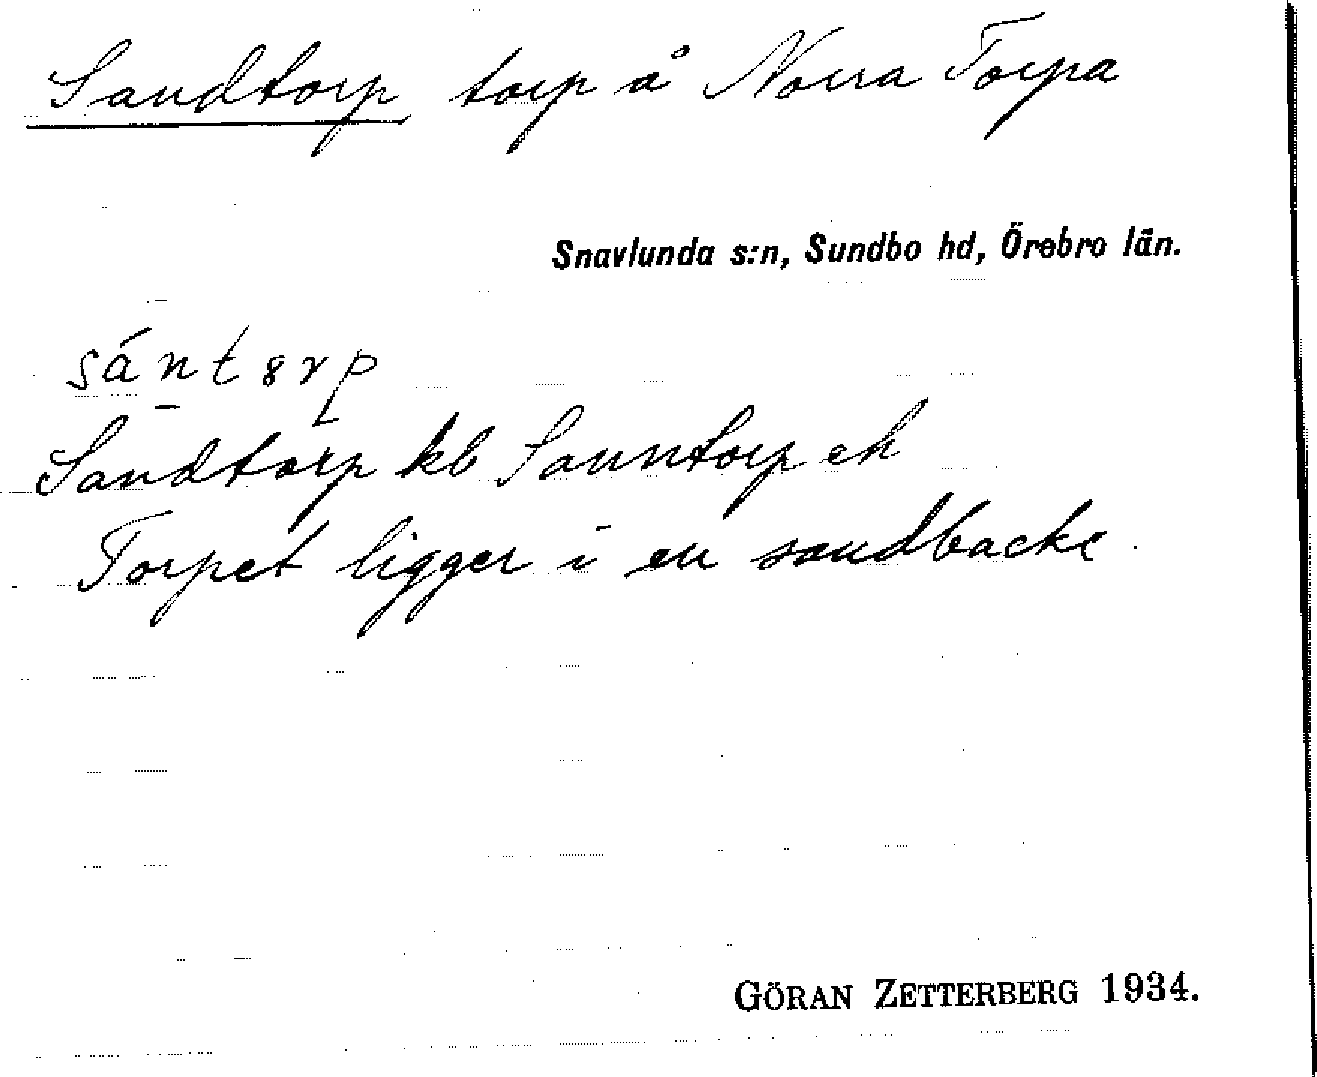 Sandtorp torp å Norra Torpa
Snavlunda s:n, Sundbo hd, Örebro län.
Sandtorp kb Sanntorp ek
Torpet ligger i en sandbacke
GÖRAN ZETTERBERG 1934.